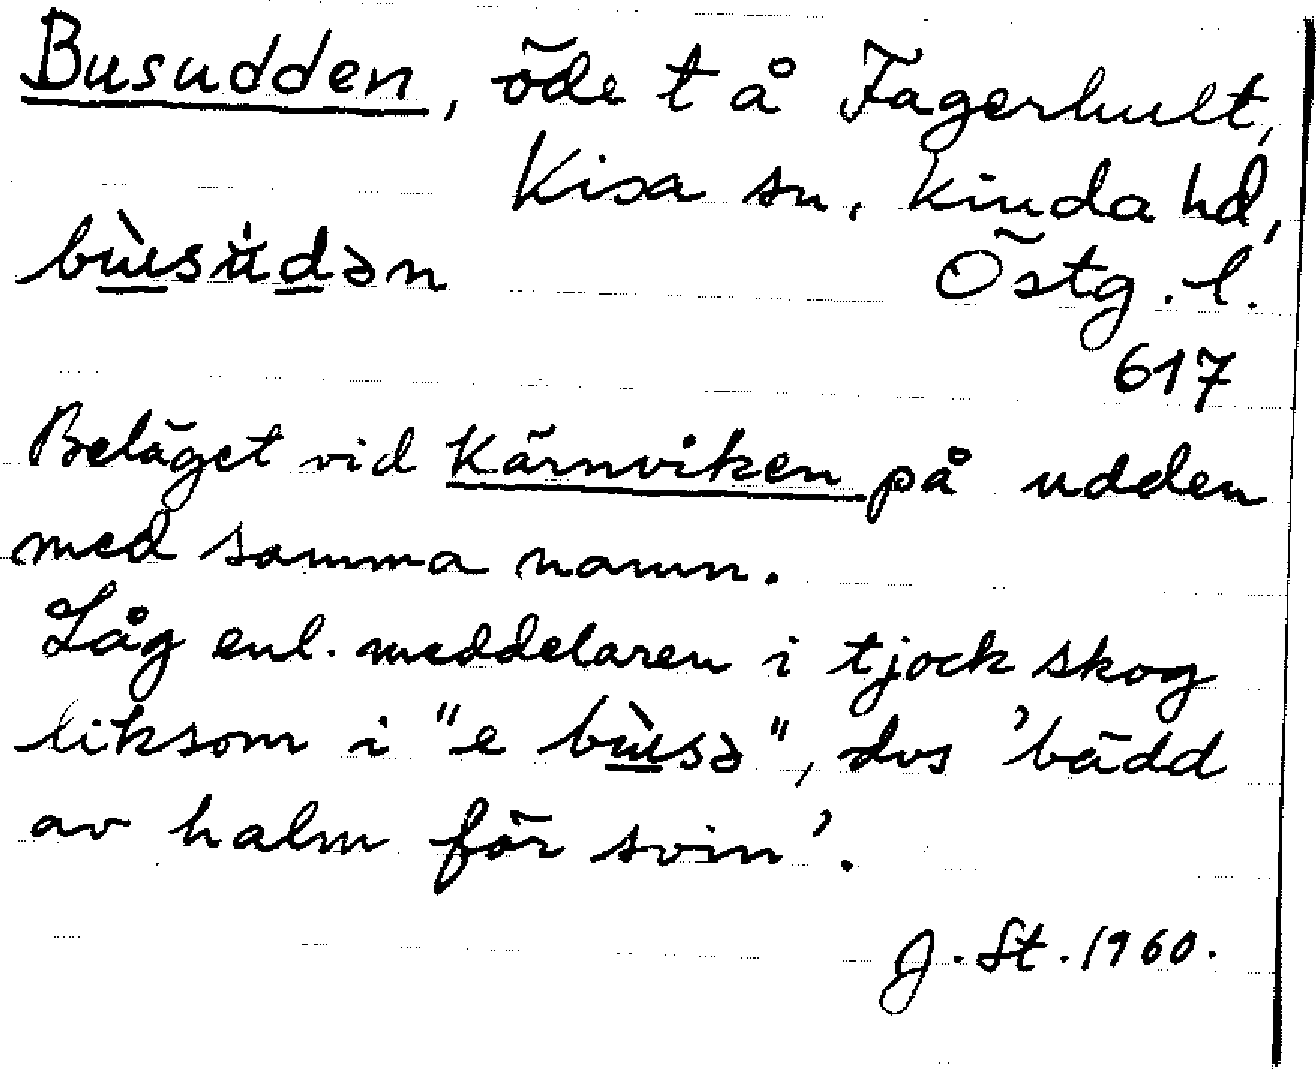 Busudden, öde t å Fagerhult,
Kisa sn, Kinda hd,
bùsu̇dən Östg. l.
617
Beläget vid Kärnviken på udden
med samma namn.
Låg enl. meddelaren i tjock skog
liksom i "e bùsə", dvs 'bädd
av halm för svin'.
J. St. 1960.